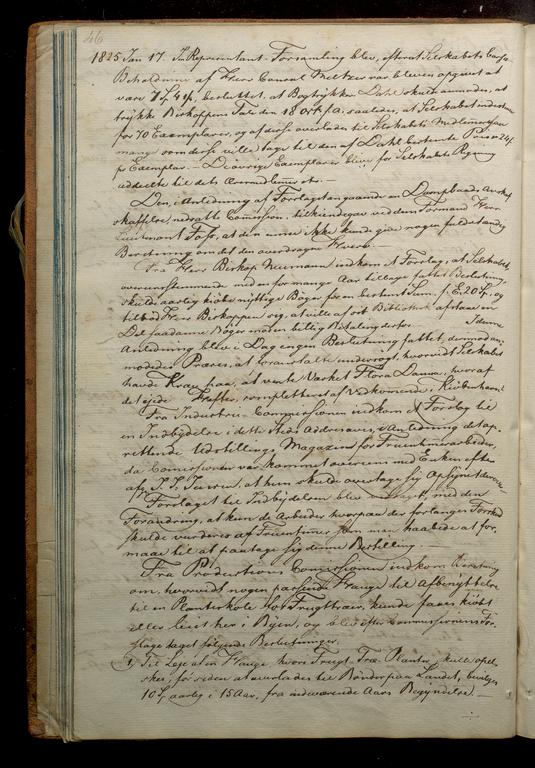 46
1825 Jan 17. I Repræsentant-Forsamling blev, efterat Selskabets Casse
Beholdning af Herr Consul Meltzer var bleven opgivet at
være 7 Sp 4 β, besluttet, at Bogtrykker Dahl skulde anmodes, at
trykke Biskoppens Tale den 18 Oct. f. A. saaledes, at Selskabet
for 70 Exemplarer, og af disse overlades til Selskabets Medlemmer saa
mange som disse ville tage til den af Dahl bestemte Priis 24 β
pr Exemplar. — De øvrige Exemplarer blive for Selskabets Regning
uddeelte til dets Æresmedlemmer etc. —
Den, i Anledning af Forslaget angaaende en Dampbaads An-
skaffelse, nedsatte Comission, tilkjendegav ved dens Formand Herr
Lieutenant Foss, at den endnu ikke kunde give nogen fuldstændig
Beretning om det den overdragne Hverv. —
Fra Herr Biskop Neumann indkom et Forslag, at Selskabet,
overeensstemmende med en for mange Aar tilbage fattet Beslutning,
skulde aarlig kiøbe nyttige Bøger for en bestemt Sum, f. E. 20 Sp, og
tilbød Herr Biskoppen sig, at ville af sit Bibliothek afstaae en
Deel saadanne Bøger mod en billig Betaling derfor. I denne
Anledning blev i Dag ingen Beslutning fattet, derimod an-
modedes Præses, at foranstalte undersøgt, hvorvidt Selskabet
havde Krav paa, at vente Værket Flora Danica, hvoraf
det ejede Hefter, complettert af Vedkommende i Kiøbenhavn.
Fra Industrie-Commissionen indkom et Forslag til
en Indbydelse i dette Steds Addresseavis, i Anledning det op-
rettende Udstillings Magazin for Fruentimmerarbeider,
da Comissionen var kommet overeens med Enken efter
afg. J. J. Jansen, at hun skulde overtage sig Opsynet dermed.
Forslaget til Indbydelsen blev med den
Forandring, at kun de Arbeider hvorpaa der forlanges Forskud
skulde vurderes af Fruentimmer som man haabede at for-
maae til at paatage sig denne Bestilling. —
Fra Productions Comissionen indkom Beretning
om, hvorvidt nogen passende Hauge til Afbenyttelse
til en Planteskole for Frugttræer, kunde faaes kiøbt
eller leiet her i Byen, og blev efter Commissionens For-
slag taget følgende Beslutninger.
1) Til Leje af en Hauge hvori Frugt-Træ Planter skulle opel-
skes, for siden at overlades til Bønder paa Landet, bevilges
10 Sp aarlig i 15 Aar, fra indeværende Aars Begyndelse. —